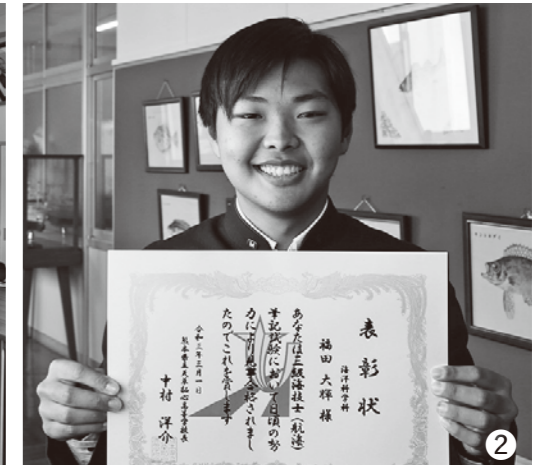 表彰状
海洋科学科
福田 大輝 様
あなたは三級海技士(航海)
筆記試験において日頃の努
力により見事合格されまし
たのでこれを賞します
令和三年三月一日
熊本県立天草拓心高等学校長
中村 洋介
2